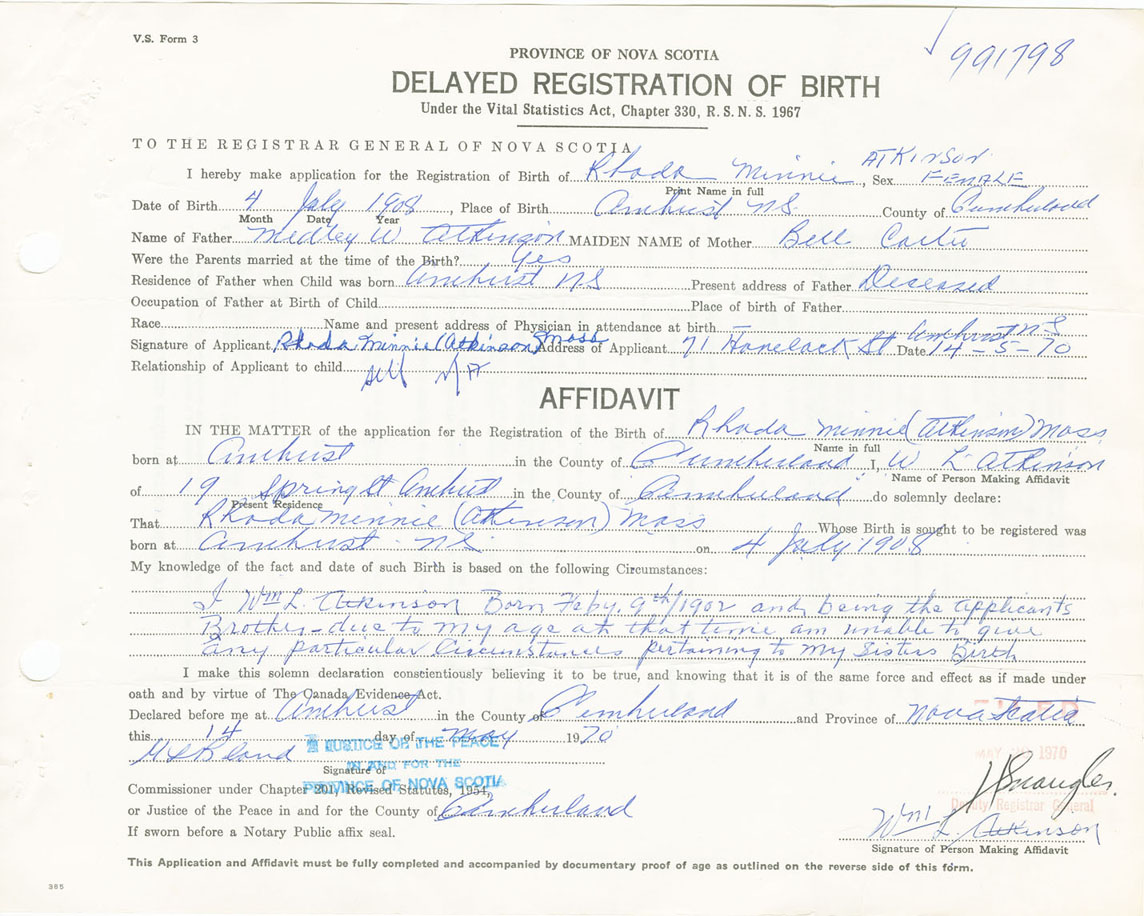 V.S. Form 3
991798
PROVINCE OF NOVA SCOTIA
DELAYED REGISTRATION OF BIRTH
Under the Vital Statistics Act, Chapter 330, R.S.N.S. 1967
TO THE REGISTRAR GENERAL OF NOVA SCOTIA
ATKINSON
I hereby make application for the Registration of Birth of Rhoda Minnie, Sex FEMALE
Print Name in full
Date of Birth 4 July 1908, Place of Birth Amherst NS County of Cumberland
Month Date Year
Name of Father Medley W Atkinson MAIDEN NAME of Mother Bell Carter
Were the Parents married at the time of the Birth? Yes
Residence of Father when Child was born Amherst NS Present address of Father Deceased
Occupation of Father at Birth of Child Place of birth of Father
Race Name and present address of Physician in attendance at birth —
Amherst NS
Signature of Applicant Rhoda Minnie (Atkinson) Moss Address of Applicant 71 Havelock St Date 14-5-70
Relationship of Applicant to child self
AFFIDAVIT
IN THE MATTER of the application for the Registration of the Birth of Rhoda Minnie (Atkinson) Moss
Name in full
born at Amherst in the County of Cumberland I, W L Atkinson
Name of Person Making Affidavit
of 19 Spring St Amherst in the County of Cumberland do solemnly declare:
Present Residence
That Rhoda Minnie (Atkinson) Moss Whose Birth is sought to be registered was
born at Amherst NS on 4 July 1908
My knowledge of the fact and date of such Birth is based on the following Circumstances:
I Wm L. Atkinson Born Feby. 9th/1902 and being the applicants
Brother - due to my age at that time am unable to give
any particular Circumstances pertaining to my Sisters Birth
I make this solemn declaration conscientiously believing it to be true, and knowing that it is of the same force and effect as if made under
oath and by virtue of The Canada Evidence Act.
Declared before me at Amherst in the County of Cumberland and Province of Nova Scotia
this 14 day of May 1970
JUSTICE OF THE PEACE
IN AND FOR THE
PROVINCE OF NOVA SCOTIA
MAY 1970
Signature of
Commissioner under Chapter 201, Revised Statutes, 1954,
Deputy Registrar General
or Justice of the Peace in and for the County of Cumberland
Wm L. Atkinson
If sworn before a Notary Public affix seal.
Signature of Person Making Affidavit
This Application and Affidavit must be fully completed and accompanied by documentary proof of age as outlined on the reverse side of this form.
385